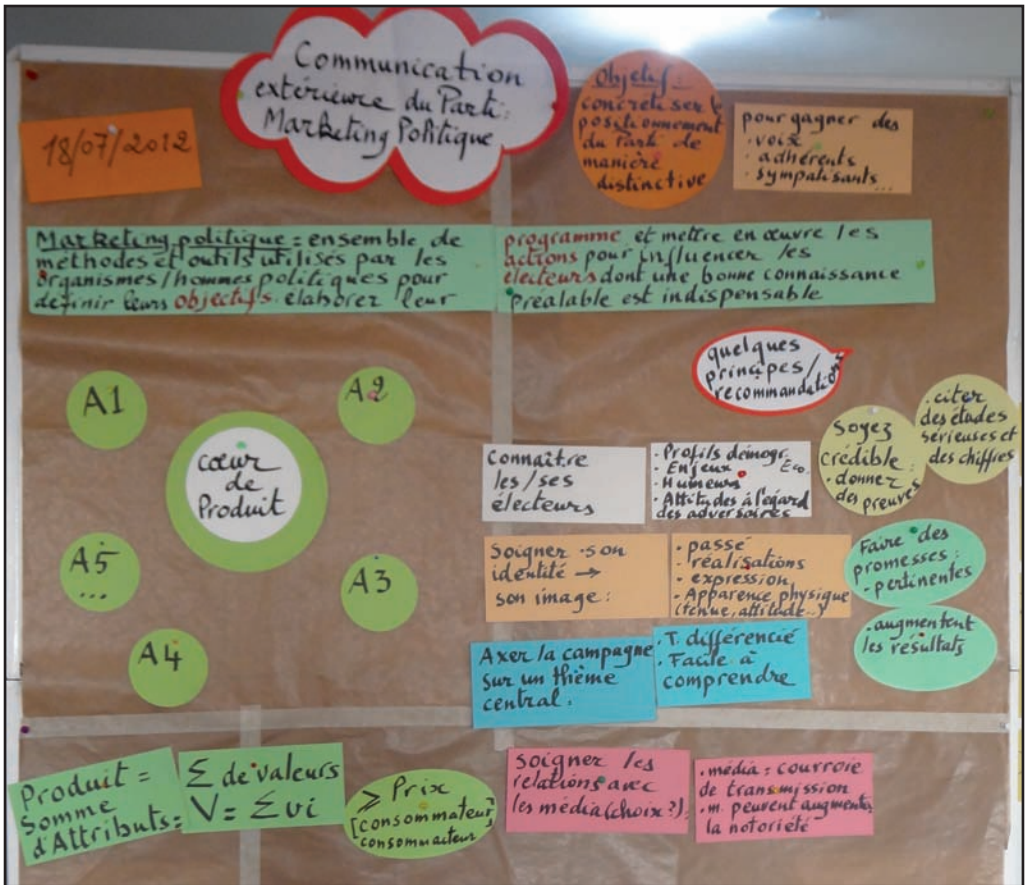 Communication
extérieure du Parti:
Marketing Politique
18/07/2012
Objectif:
concrétiser le
positionnement
du Parti de
manière
distinctive
pour gagner des
. voix
. adhérents
. sympatisants...
Marketing politique = ensemble de
méthodes et outils utilisés par les
organismes/hommes politiques pour
definir leurs objectifs. élaborer leur
programme et mettre en œuvre les
actions pour influencer les
électeurs dont une bonne connaissance
préalable est indispensable
A1
A2
cœur
de
Produit
A5
...
A3
A4
quelques
principes/
recommandations
Connaître
les/ses
électeurs
. Profils démogr.
. Enjeux Éco.
. Humeurs
. Attitudes à l'égard
des adversaires
Soyez
crédible:
. donner
des preuves
. citer
des études
sérieuses et
des chiffres
Soigner son
identité →
son image:
. passé
. réalisations
. expression
. Apparence physique
(tenue, attitude..)
Faire des
promesses:
. pertinentes
. augmentent
les résultats
Axer la campagne
sur un thème
central:
. T. différencié
. Facile à
comprendre
Produit =
Somme
d'Attributs =
Σ de valeurs
V = Σ vi
⩾ Prix
[consommateur]
consommacteur
soigner les
relations avec
les média (choix?):
. média = courroie
de transmission
. m. peuvent augmenter
la notoriété